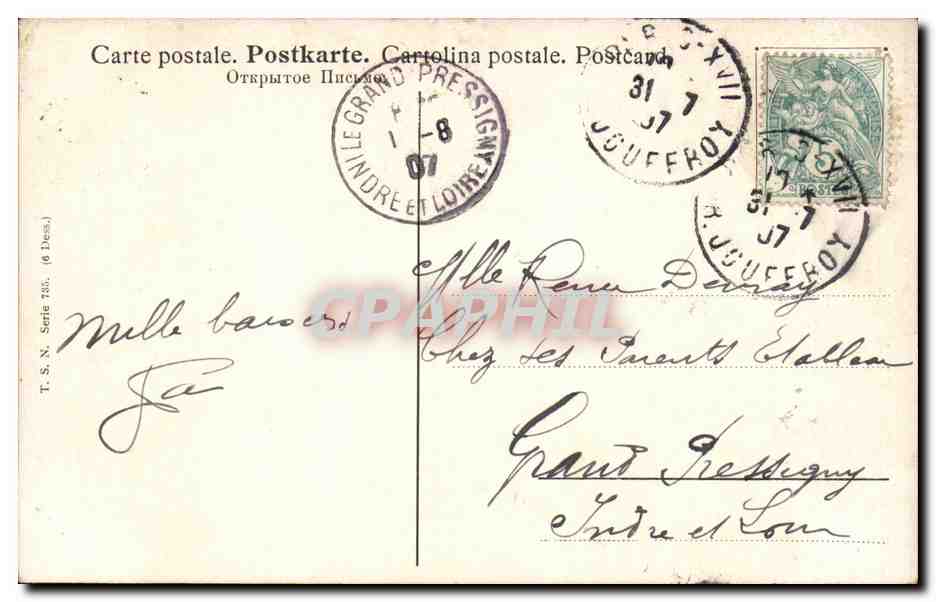 Carte postale. Postkarte. Cartolina postale. Postcard.
Открытое Письмо.
LE GRAND PRESSIGNY
1 -8
07
INDRE ET LOIRE
XVII
31 7
07
R. JOUFFROY
5
POSTES
XVII
31 7
07
R. JOUFFROY
T. S. N. Serie 735. (6 Dess.)
CPAPHIL
Mille baisers
Melle Renée
Chez ses Parents
Grand Pressigny
Indre et Loire